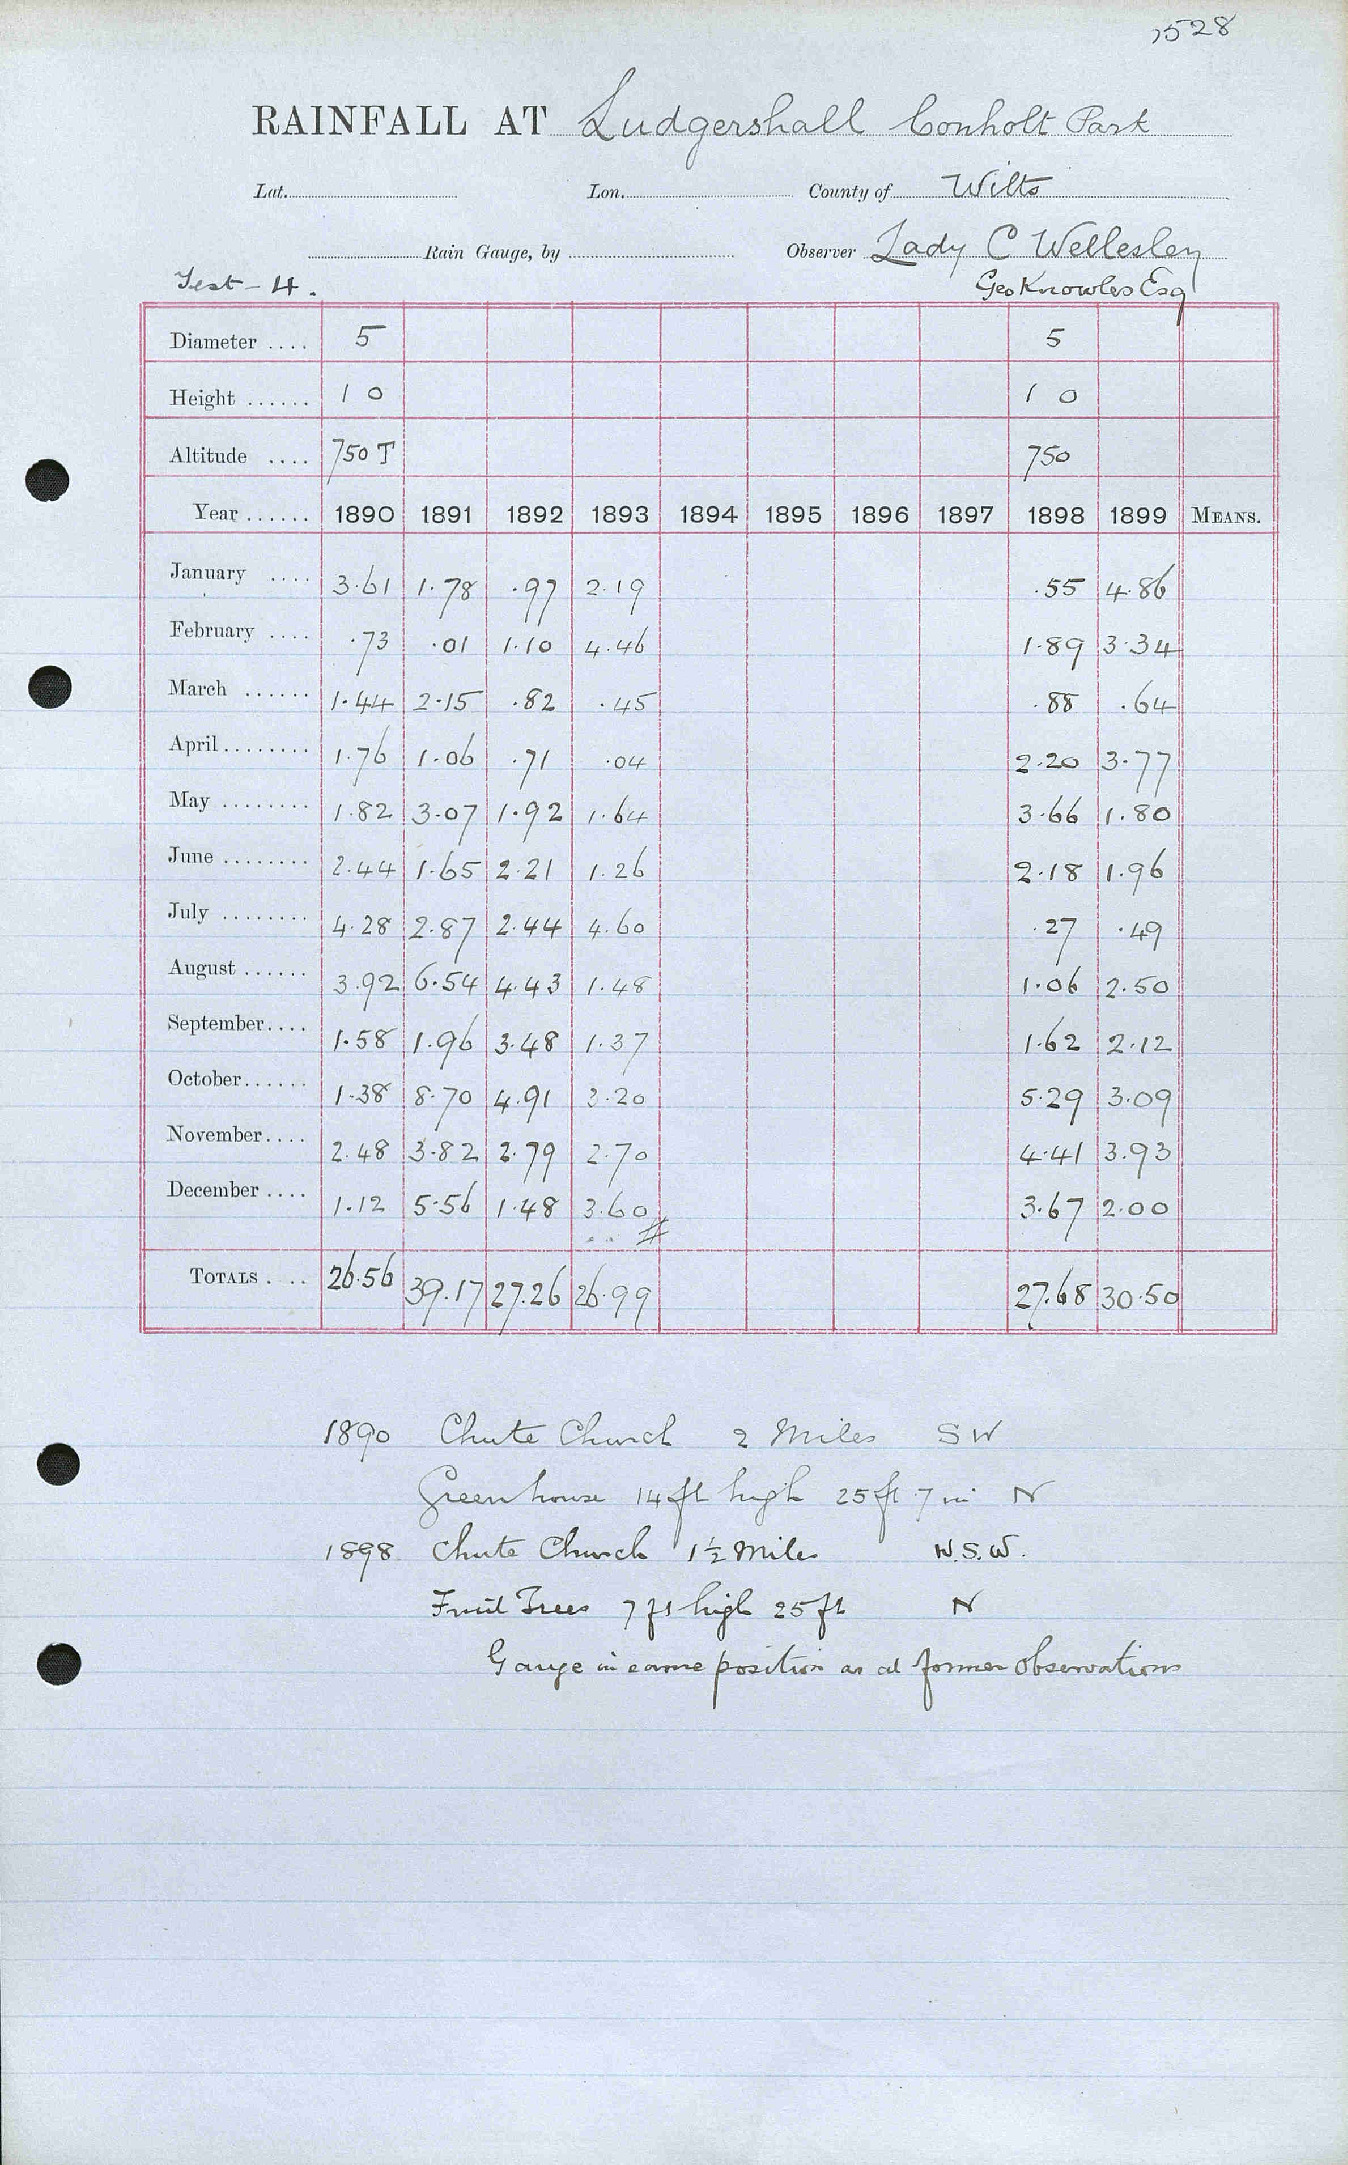 1528
RAINFALL AT Ludgershall Conholt Park
Lat. Lon. County of Wilts
Rain Gauge, by Observer Lady C Wellesley
Test - 4. Geo Knowles Esq
Diameter .... 5 5
Height ...... 1 0 1 0
Altitude .... 750 T 750
Year ...... 1890 1891 1892 1893 1894 1895 1896 1897 1898 1899 MEANS.
January .... 3.61 1.78 .97 2.19 .55 4.86
February .... .73 .01 1.10 4.46 1.89 3.34
March ...... 1.44 2.15 .82 .45 .88 .64
April ........ 1.76 1.06 .71 .04 2.20 3.77
May ........ 1.82 3.07 1.92 1.64 3.66 1.80
June ........ 2.44 1.65 2.21 1.26 2.18 1.96
July ........ 4.28 2.87 2.44 4.60 .27 .49
August ...... 3.92 6.54 4.43 1.48 1.06 2.50
September.... 1.58 1.96 3.48 1.37 1.62 2.12
October...... 1.38 8.70 4.91 3.20 5.29 3.09
November.... 2.48 3.82 2.79 2.70 4.41 3.93
December .... 1.12 5.56 1.48 3.60 3.67 2.00
TOTALS .... 26.56 39.17 27.26 26.99 27.68 30.50
1890 Chute Church 2 Miles SW
Greenhouse 14 ft high 25 ft 7 in N
1898 Chute Church 1½ Miles W.S.W.
Fruit Trees 7 ft high 25 ft N
Gauge in same position as at former observations